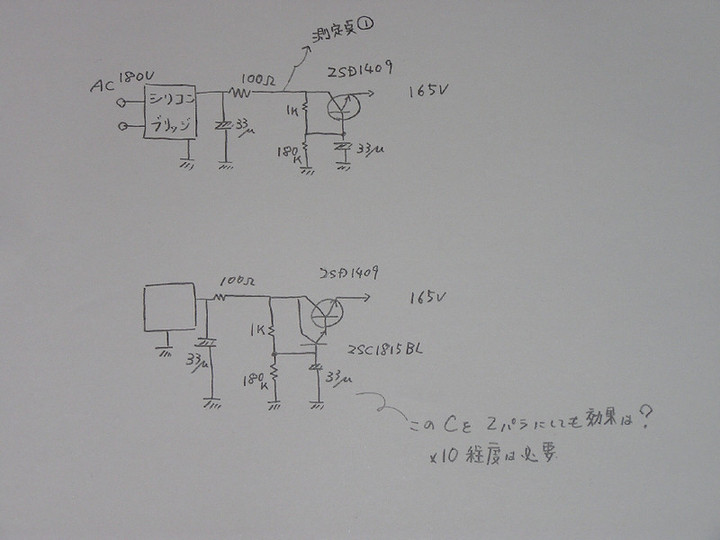 測定点①
AC 180V
シリコン
ブリッジ
100Ω
2SD1409
165V
33μ
1K
180K
33μ
100Ω
2SD1409
165V
33μ
1K
2SC1815BL
180K
33μ
このCを2パラにしても効果は?
×10程度は必要